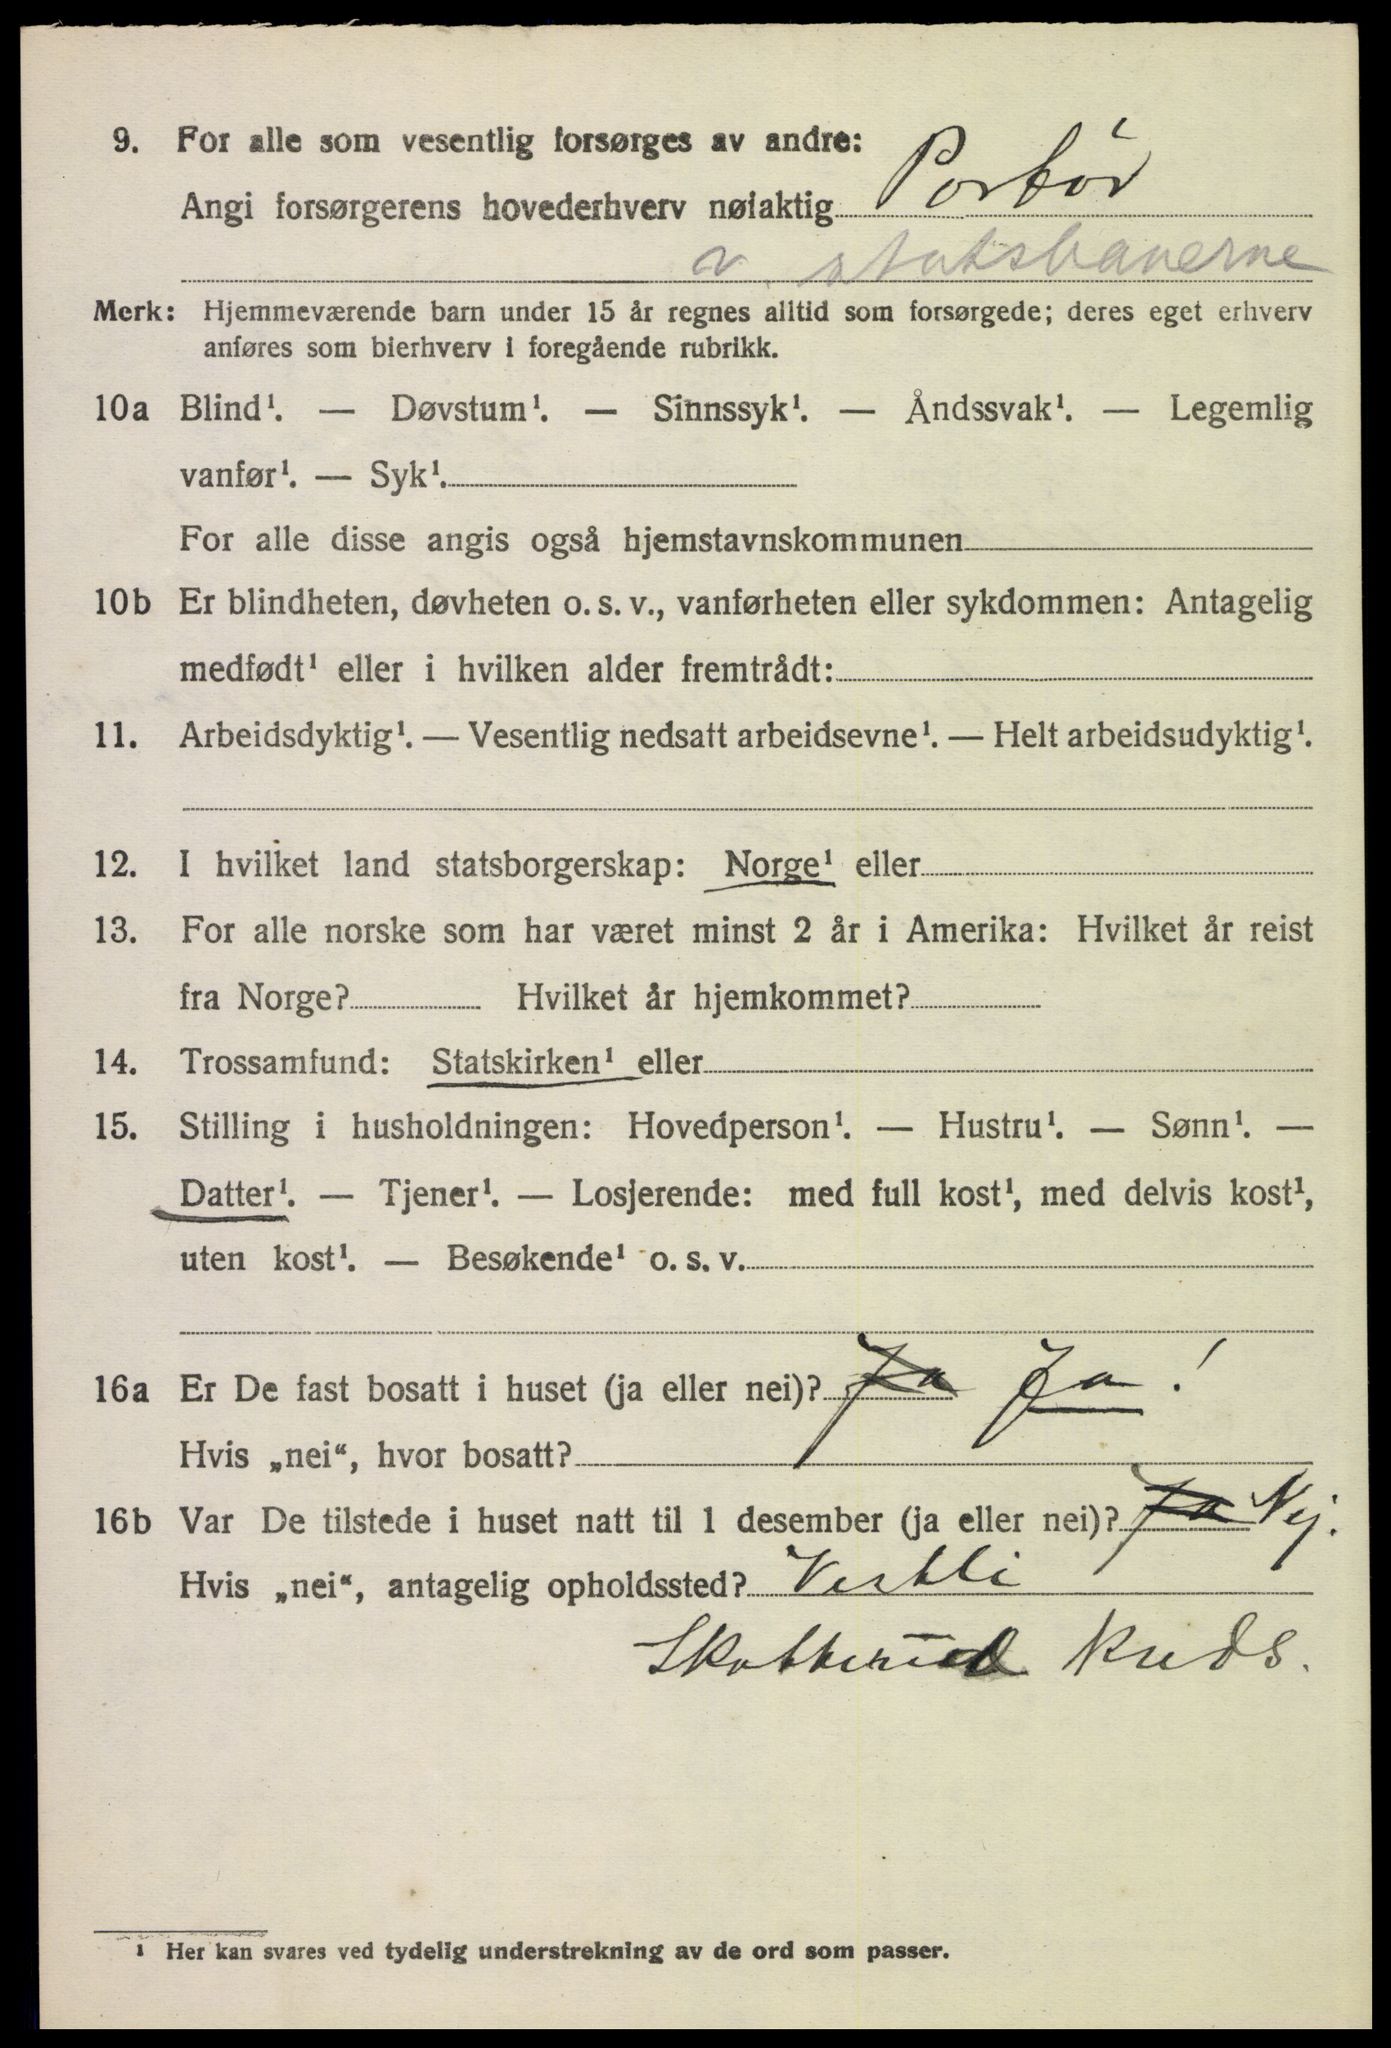 9. For alle som vesentlig forsørges av andre:
Angi forsørgerens hovederhverv nøiaktig Portör
v. statsbanerne
Merk: Hjemmeværende barn under 15 år regnes alltid som forsørgede; deres eget erhverv
anføres som bierhverv i foregående rubrikk.
10a Blind¹. — Døvstum¹. — Sinnssyk¹. — Åndssvak¹. — Legemlig
vanfør¹. — Syk¹.
For alle disse angis også hjemstavnskommunen
10b Er blindheten, døvheten o. s. v., vanførheten eller sykdommen: Antagelig
medfødt¹ eller i hvilken alder fremtrådt:
11. Arbeidsdyktig¹. — Vesentlig nedsatt arbeidsevne¹. — Helt arbeidsudyktig¹.
12. I hvilket land statsborgerskap: Norge¹ eller
13. For alle norske som har været minst 2 år i Amerika: Hvilket år reist
fra Norge? Hvilket år hjemkommet?
14. Trossamfund: Statskirken¹ eller
15. Stilling i husholdningen: Hovedperson¹. — Hustru¹. — Sønn¹. —
Datter¹. — Tjener¹. — Losjerende: med full kost¹, med delvis kost¹,
uten kost¹. — Besøkende¹ o. s. v.
16a Er De fast bosatt i huset (ja eller nei)? Ja Ja!
Hvis „nei“, hvor bosatt?
16b Var De tilstede i huset natt til 1 desember (ja eller nei)? Ja Nej.
Hvis „nei“, antagelig opholdssted? Vestli
Skotterud
¹ Her kan svares ved tydelig understrekning av de ord som passer.